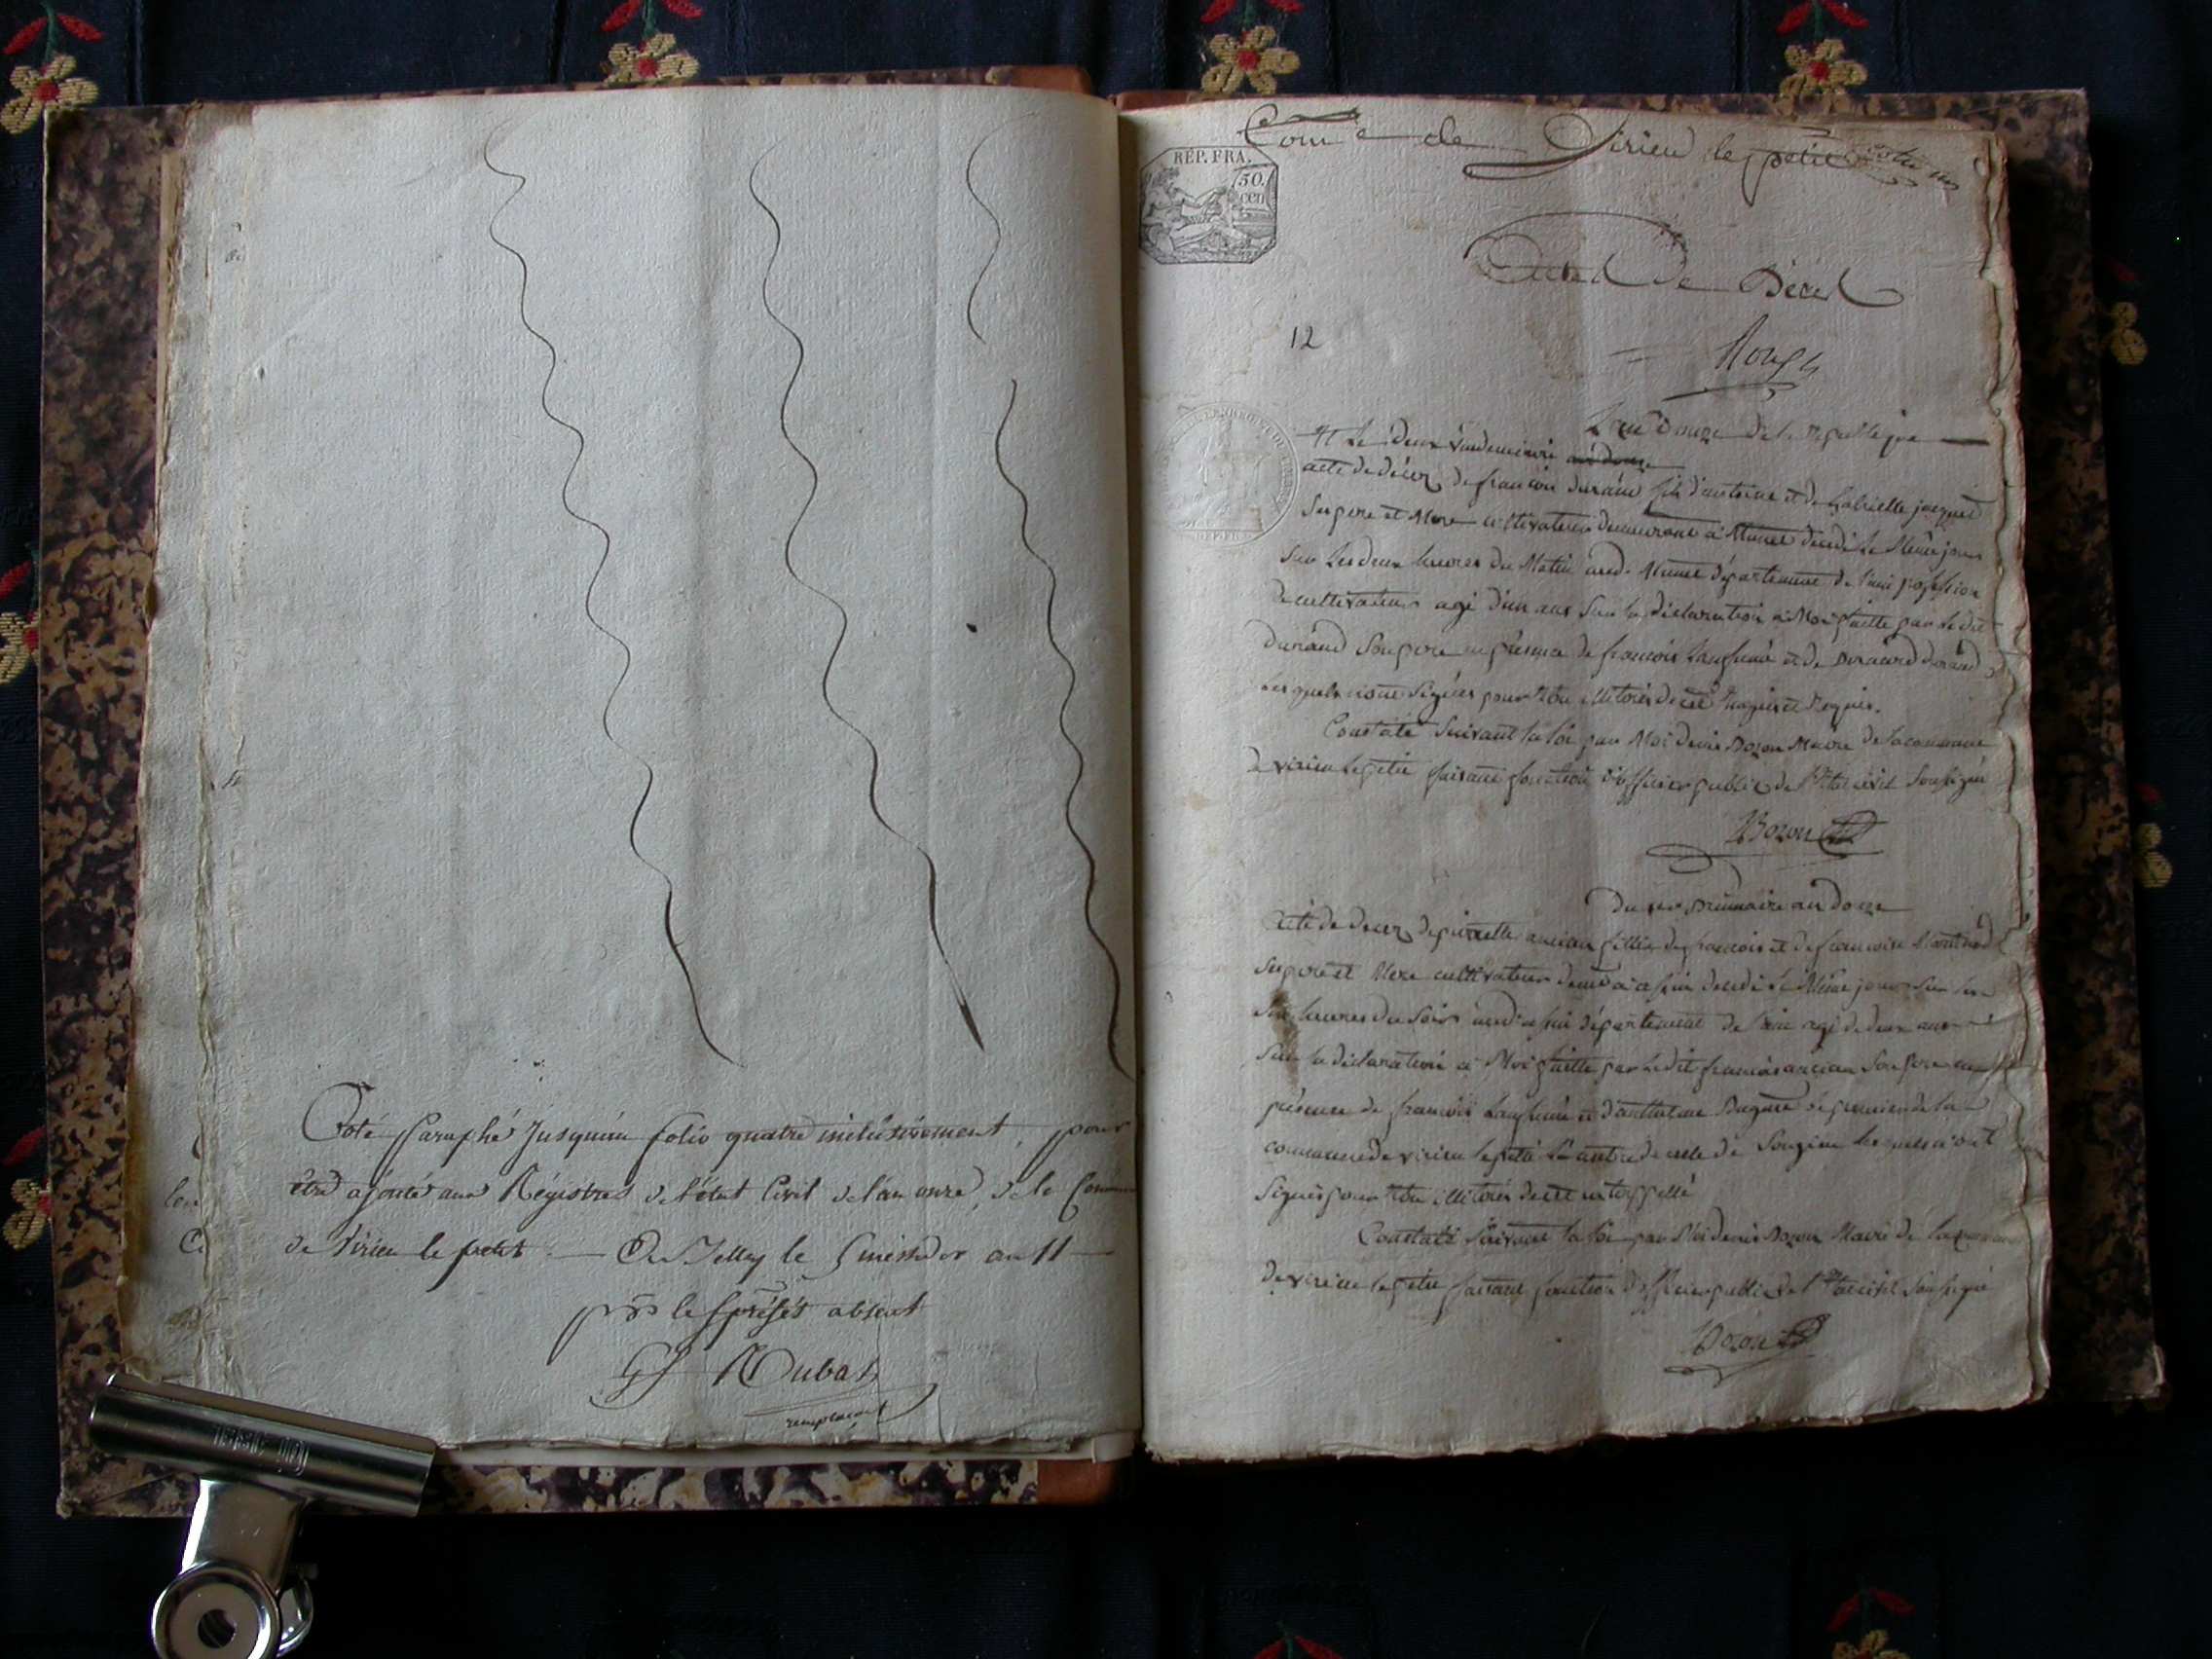 Coté Paraphé Jusqu'au folio quatre inclusivement, pour
être ajouté aux Régistres de l'état Civil de l'an onze, de la
de Virieu le petit. — le Messidor an 11 —
pr le sspréfét absent
Rubat
remplaçant
Come de Virieu le petit
REP. FRA.
50.
cen
Actes de Décès
12
L'an Douze de la Republique
Le deux Vendemiaire an douze
acte de décès de françois durand fils d'antoine et de Gabrielle jacquet
Ses pere et Mere cultivateurs demeurant à Munet décédé le Même jour
Sur les deux heures du Matin aud. Munet département de l'ain profession
de cultivateur agé d'un ans Sur la déclaration à Moi faitte par le dit
durand Son pere en présence de françois et de durand
lesquels n'ont Signés pour être illitérés de ce Enquis et Requis.
Constaté Suivant la loi par Moi denis Bozon Maire de la commune
de virieu le petit faisant fonction d'officier public de l'Etat civil Soussigné
Bozon
Du brumaire an douze
acte de décès de pierrette ancian fille de françois et de françoise
Ses pere et Mere cultivateurs à assin décédé le Même jour Sur les
Six heures du Soir aud. assin département de l'ain agé de deux ans
Sur la déclaration à Moi faitte par le dit françois ancian Son pere en
présence de françois et d'anthelme le premier de la
commune de virieu le petit l'autre de celle de Songieu lesquels n'ont
Signés pour être illitérés de ce interpellé
Constaté Suivant la loi par Moi denis Bozon Maire de la commune
de virieu le petit faisant fonction d'officier public de l'Etat civil Soussigné
Bozon